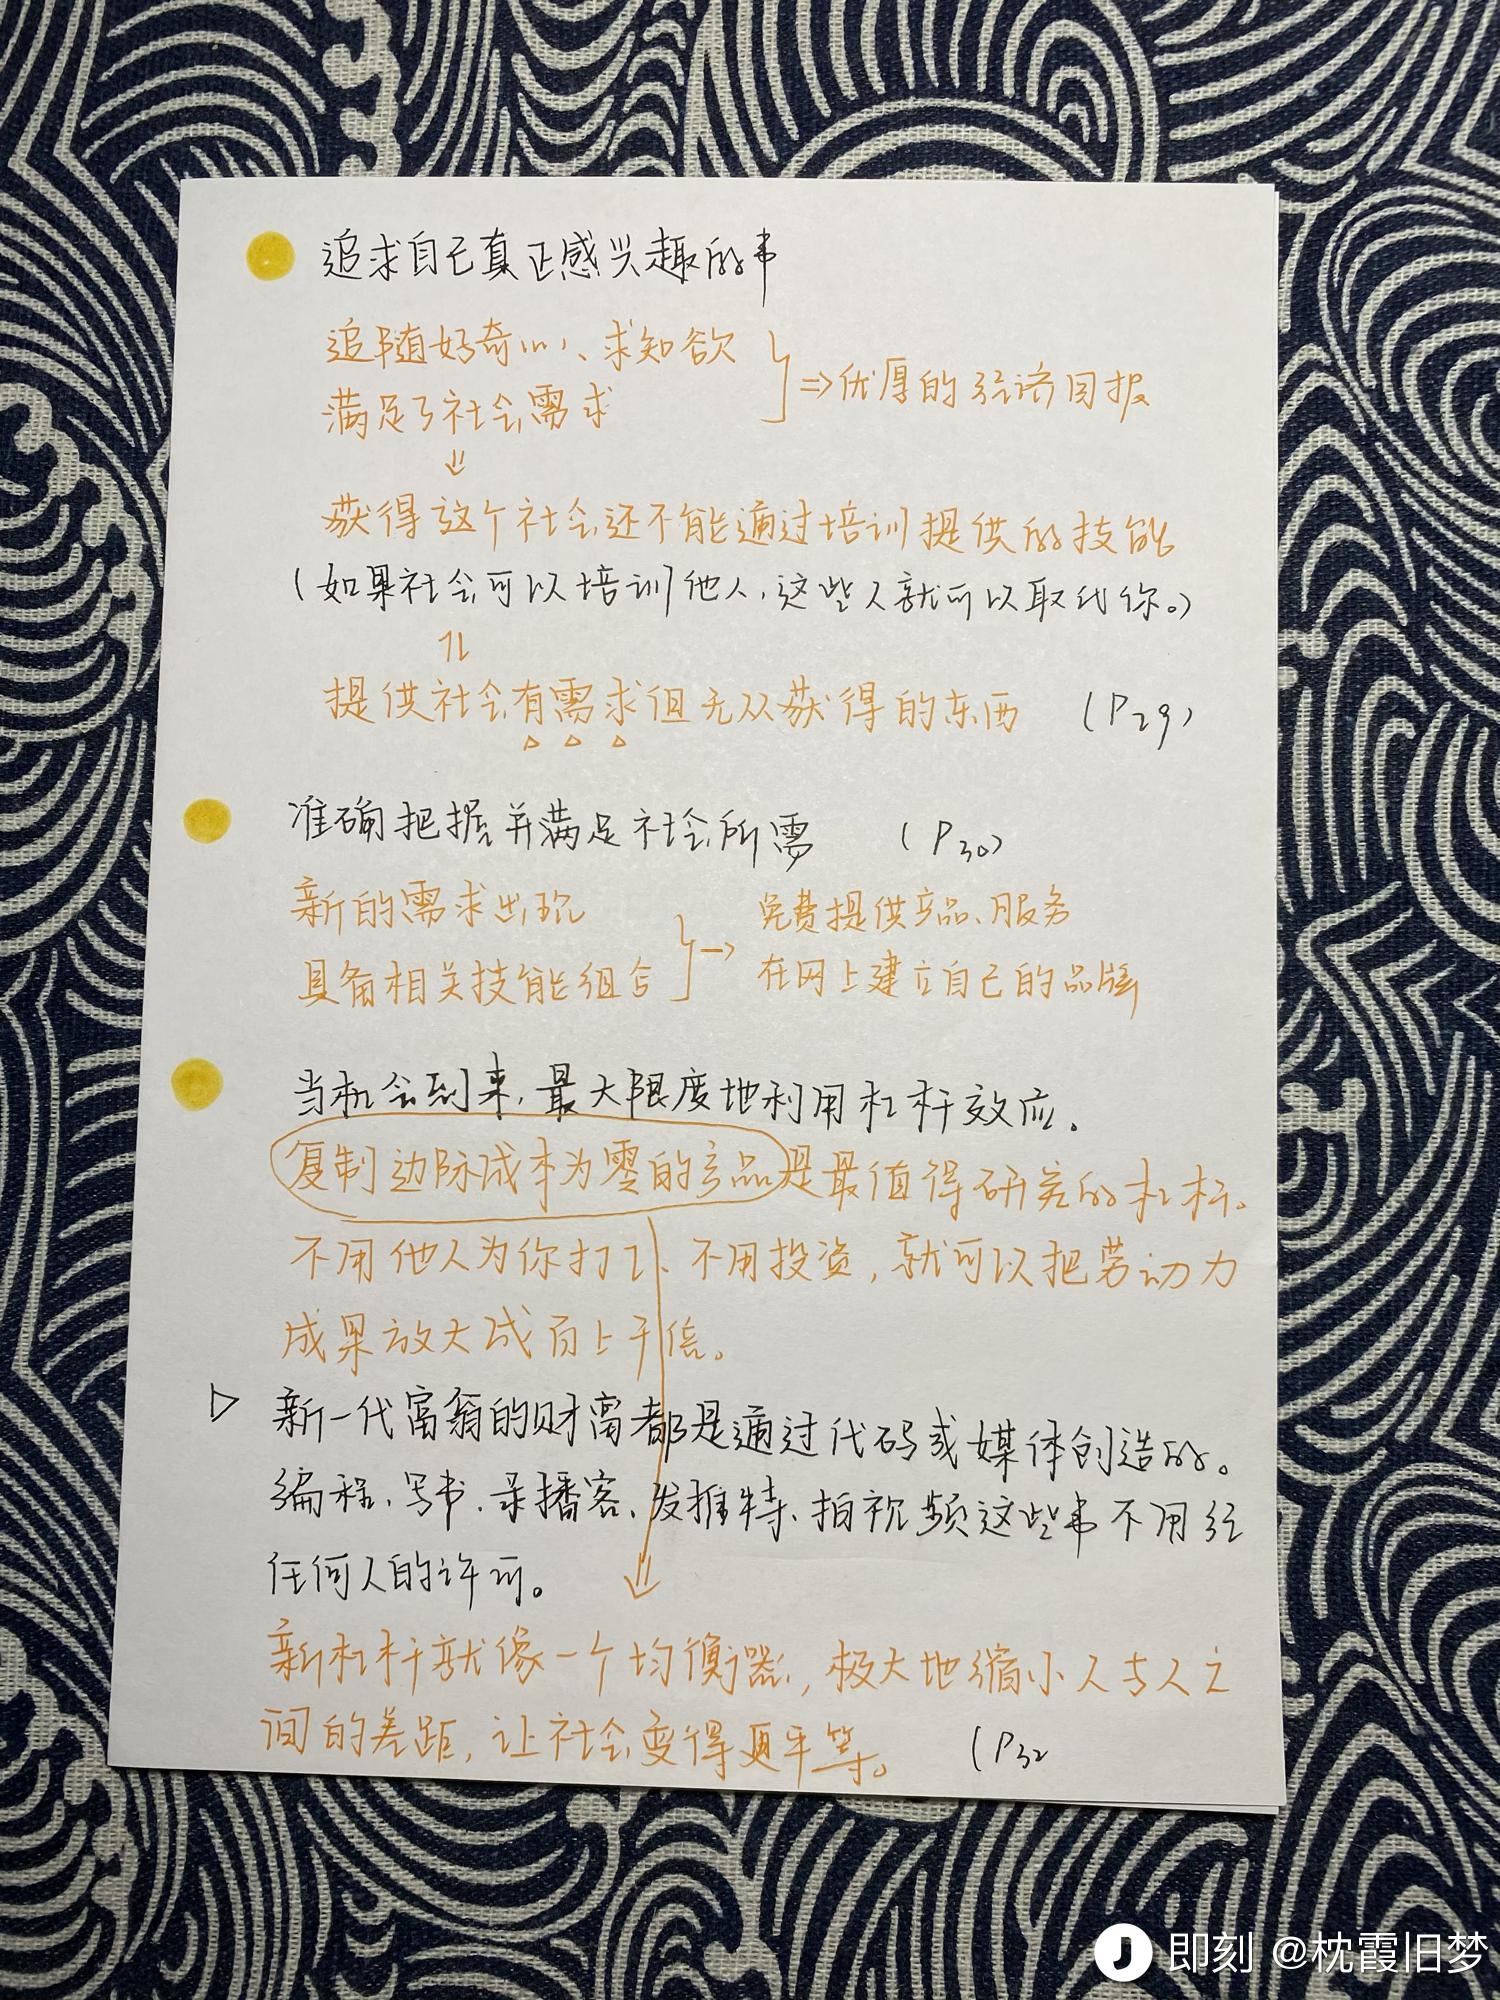 追求自己真正感兴趣的事
追随好奇心、求知欲
满足了社会需求
⇒优厚的经济回报
⇓
获得这个社会还不能通过培训提供的技能
(如果社会可以培训他人,这些人就可以取代你。)
提供社会有需求但无从获得的东西 (P29)
准确把握并满足社会所需 (P30)
新的需求出现
具备相关技能组合
→
免费提供产品、服务
在网上建立自己的品牌
当机会到来,最大限度地利用杠杆效应。
复制边际成本为零的产品是最值得研究的杠杆。
不用他人为你打工、不用投资,就可以把劳动力
成果放大成百上千倍。
▷ 新一代富翁的财富都是通过代码或媒体创造的。
编程、写书、录播客、发推特、拍视频这些事不用经
任何人的许可。
新杠杆就像一个均衡器,极大地缩小人与人之
间的差距,让社会变得更平等。 (P32
即刻 @枕霞旧梦